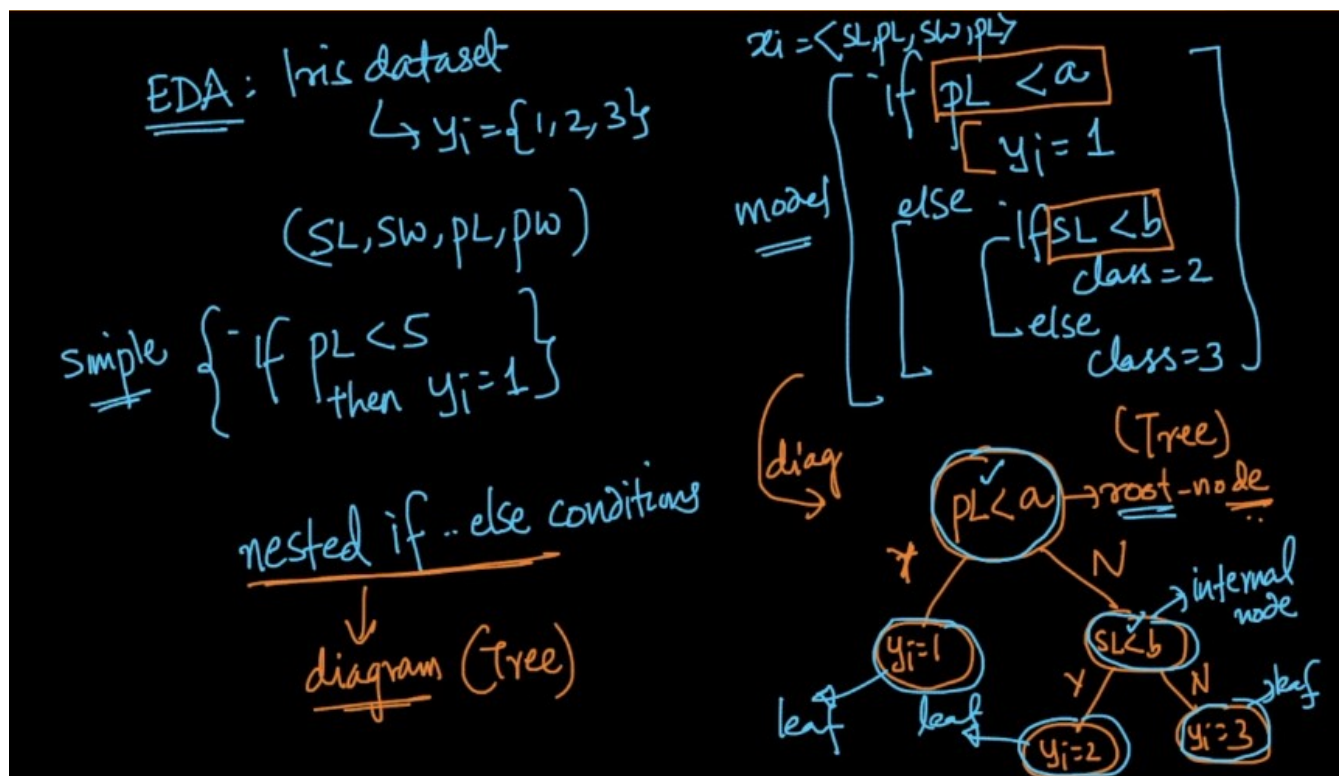 EDA: Iris dataset
↳ yi={1,2,3}
(SL, SW, PL, PW)
simple { if PL<5
then yi=1 }
nested if..else conditions
diagram (Tree)
xi=<SL,PL,SW,PL>
model
if PL <a
yi=1
else if SL<b
class=2
else
class=3
diag
(Tree)
PL<a → root-node
Y N
yi=1
SL<b
internal
node
leaf
Y N
leaf
yi=2
yi=3
leaf